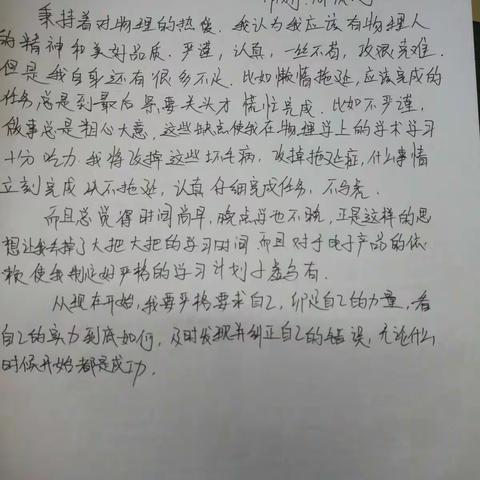 秉持着对物理的热爱，我认为我应该有物理人
的精神和美好品质，严谨，认真，一丝不苟，攻艰克难。
但是我自身还有很多不足，比如懒惰拖延，应该完成的
任务总是到最后紧要关头才慌忙完成，比如不严谨，
做事总是粗心大意，这些缺点使我在物理学上的学术学习
十分吃力，我将改掉这些坏毛病，改掉拖延症，什么事情
立刻完成从不拖延，认真仔细完成任务，不马虎。
而且总觉得时间尚早，晚点学也不晚，正是这样的思
想让我丢掉了大把大把的学习时间而且对于电子产品的依
赖，使我制定好严格的学习计划于虚乌有。
从现在开始，我要严格要求自己，自己的力量，看
自己的实力到底如何，及时发现并纠正自己的错误，无论什么
时候开始都是成功。